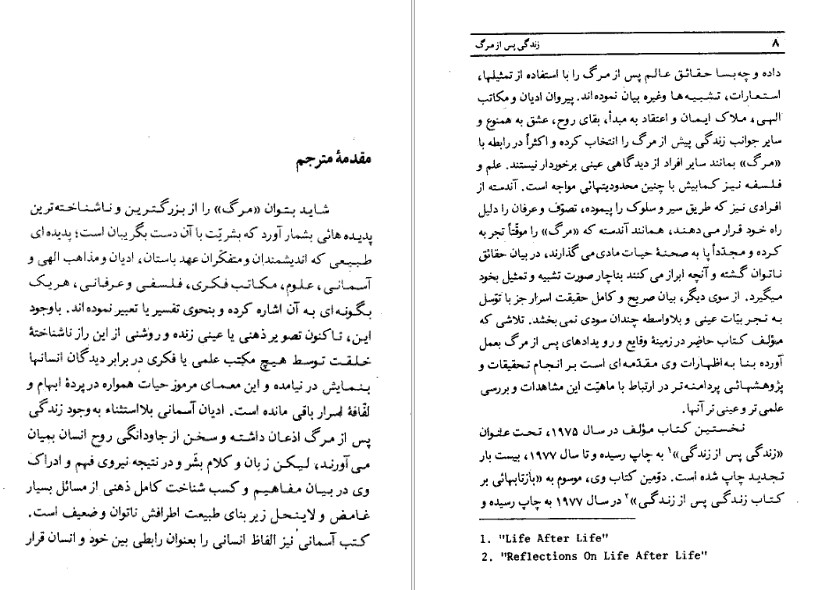 مقدمهٔ مترجم
شاید بتوان «مرگ» را از بزرگترین و ناشناخته‌ترین
پدیده‌هائی بشمار آورد که بشریّت با آن دست بگریبان است؛ پدیده‌ای
طبیعی که اندیشمندان و متفکّران عهد باستان، ادیان و مذاهب الهی و
آسمانی، علوم، مکاتب فکری، فلسفی و عرفانی، هریک
بگونه‌ای به آن اشاره کرده و بنحوی تفسیر یا تعبیر نموده‌اند. باوجود
این، تاکنون تصویر ذهنی یا عینی زنده و روشنی از این راز ناشناختهٔ
خلقت توسط هیچ مکتب علمی یا فکری در برابر دیدگان انسانها
بنمایش در نیامده و این معمای مرموز حیات همواره در پردهٔ ابهام و
لفّافهٔ اسرار باقی مانده است. ادیان آسمانی بلااستثناء به وجود زندگی
پس از مرگ اذعان داشته و سخن از جاودانگی روح انسان بمیان
می‌آورند، لیکن زبان و کلام بشر و در نتیجه نیروی فهم و ادراک
وی در بیان مفاهیم و کسب شناخت کامل ذهنی از مسائل بسیار
غامض و لاینحل زیر بنای طبیعت اطرافش ناتوان و ضعیف است.
کتب آسمانی نیز الفاظ انسانی را بعنوان رابطی بین خود و انسان قرار
۸ زندگی پس از مرگ
داده و چه‌بسا حقائق عالم پس از مرگ را با استفاده از تمثیلها،
استعارات، تشبیه‌ها وغیره بیان نموده‌اند. پیروان ادیان و مکاتب
الهی، ملاک ایمان و اعتقاد به مبدأ، بقای روح، عشق به همنوع و
سایر جوانب زندگی پیش از مرگ را انتخاب کرده و اکثراً در رابطه با
«مرگ» بمانند سایر افراد از دیدگاهی عینی برخوردار نیستند. علم و
فلسفه نیز کمابیش با چنین محدودیتهائی مواجه است. آندسته از
افرادی نیز که طریق سیر و سلوک را پیموده، تصوّف و عرفان را دلیل
راه خود قرار می‌دهند، همانند آندسته که «مرگ» را موقّتاً تجربه
کرده و مجدّداً پا به صحنهٔ حیات مادی می‌گذارند، در بیان حقائق
ناتوان گشته و آنچه ابراز می‌کنند بناچار صورت تشبیه و تمثیل بخود
میگیرد. از سوی دیگر، بیان صریح و کامل حقیقت اسرار جز با توّسل
به تجربیّات عینی و بلاواسطه چندان سودی نمی‌بخشد. تلاشی که
مؤلف کتاب حاضر در زمینهٔ وقایع و رویدادهای پس از مرگ بعمل
آورده بنا به اظهارات وی مقدّمه‌ای است بر انجام تحقیقات و
پژوهشهائی پردامنه‌تر در ارتباط با ماهیّت این مشاهدات و بررسی
علمی‌تر و عینی‌تر آنها.
نخستین کتاب مؤلف در سال ۱۹۷۵، تحت عنوان
«زندگی پس از زندگی»۱ به چاپ رسیده و تا سال ۱۹۷۷، بیست بار
تجدید چاپ شده است. دوّمین کتاب وی، موسوم به «بازتابهائی بر
کتاب زندگی پس از زندگی»۲ در سال ۱۹۷۷ به چاپ رسیده و
1. "Life After Life"
2. "Reflections On Life After Life"